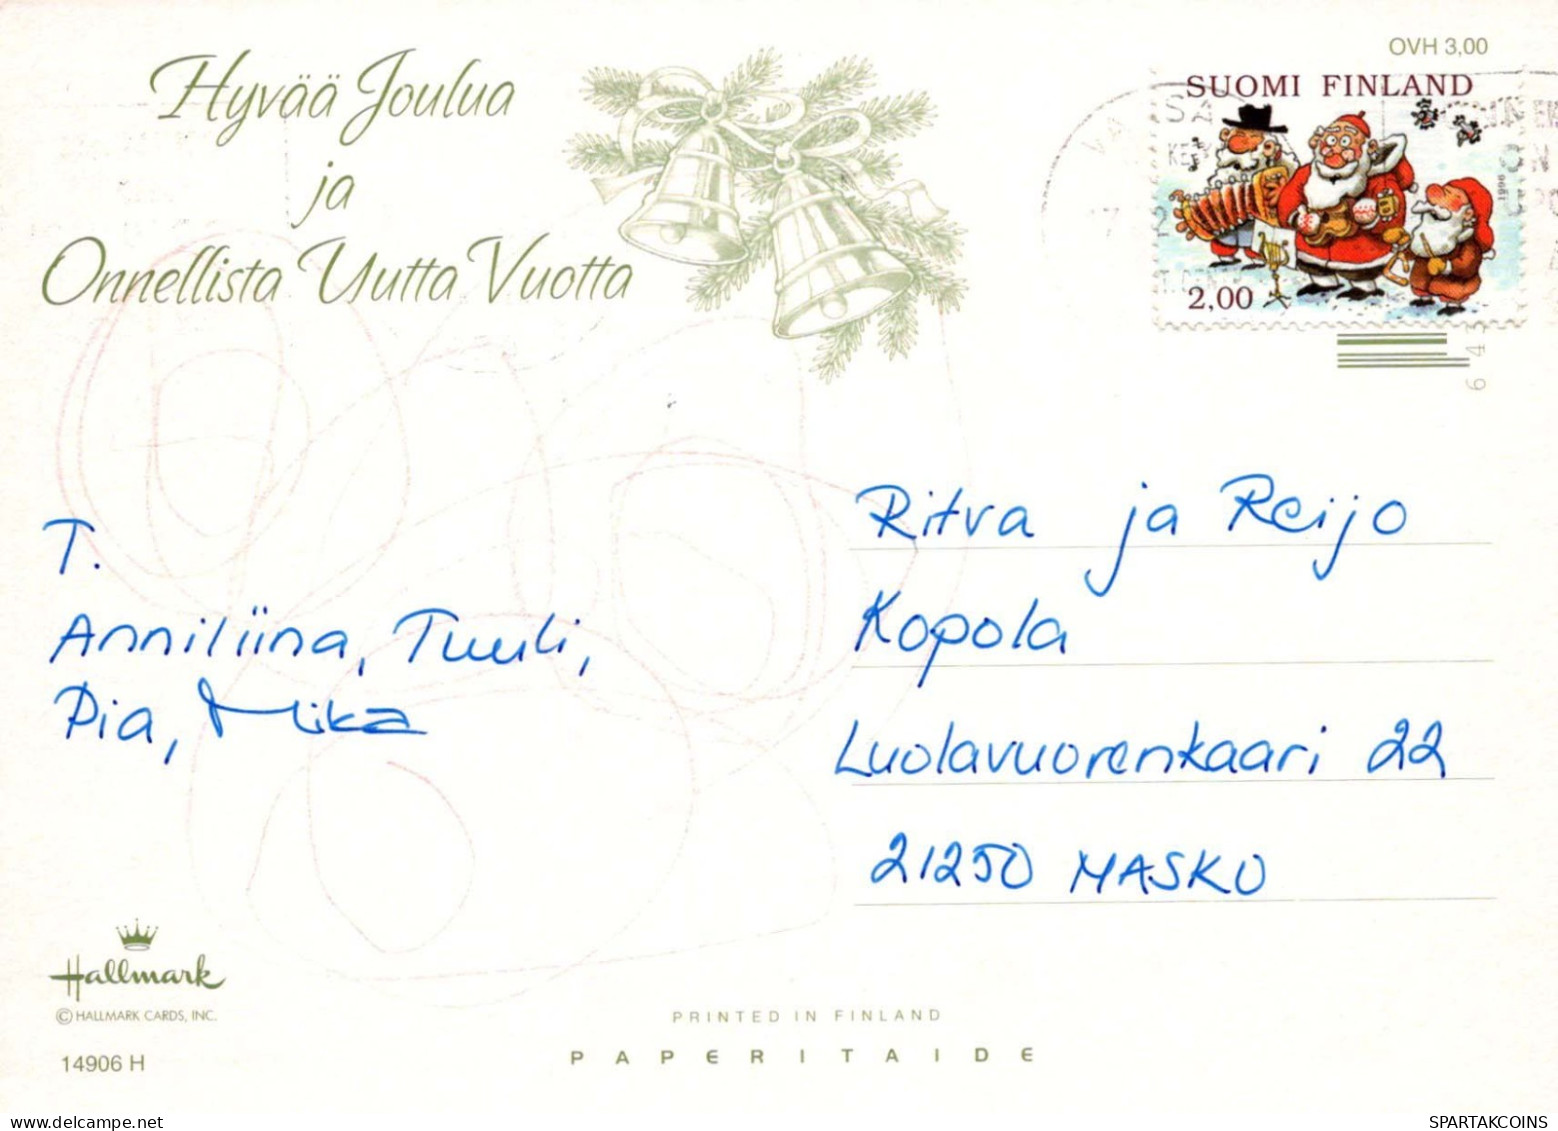 Hyvää Joulua
ja
Onnellista Uutta Vuotta
OVH 3,00
SUOMI FINLAND
1996
2,00
T.
Anniliina, Tuuli,
Pia, Mika
Ritva ja Reijo
Kopola
Luolavuorenkaari 22
21250 MASKU
Hallmark
© HALLMARK CARDS, INC.
14906 H
PRINTED IN FINLAND
PAPERITAIDE
SPARTAKCOINS